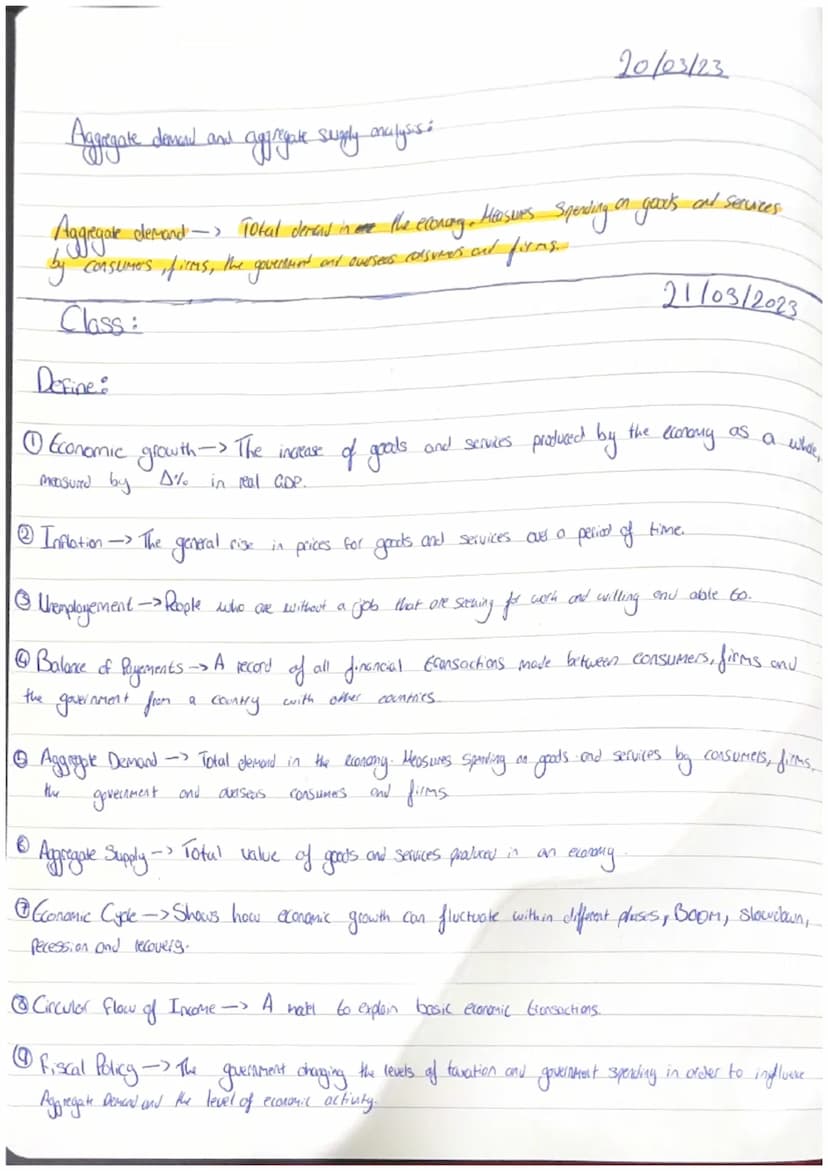 20/03/23
Aggregate demand and aggregate supply analysis:
Aggregate demand —> Total demand in the economy. Measures Spending on goods and services
by consumers, firms, the government and overseas consumers and firms.
21/03/2023
Class:
Define:
① Economic growth —> The increase of goods and services produced by the economy as a whole,
measured by Δ% in real GDP.
② Inflation —> The general rise in prices for goods and services over a period of time.
③ Unemployement —> People who are without a job that are seeking for work and willing and able to.
④ Balance of Payements —> A record of all financial transactions made between consumers, firms and
the government from a country with other countries.
⑤ Aggregate Demand —> Total demand in the economy. Measures spending on goods and services by consumers, firms,
the government and overseas consumers and firms
⑥ Aggregate Supply —> Total value of goods and services produced in an economy.
⑦ Economic Cycle —> Shows how economic growth can fluctuate within different phases, BOOM, slowdown,
Recession and recovery.
⑧ Circular flow of Income —> A model to explain basic economic transactions.
⑨ Fiscal Policy —> The government changing the levels of taxation and government spending in order to influence
Aggregate Demand and the level of economic activity.